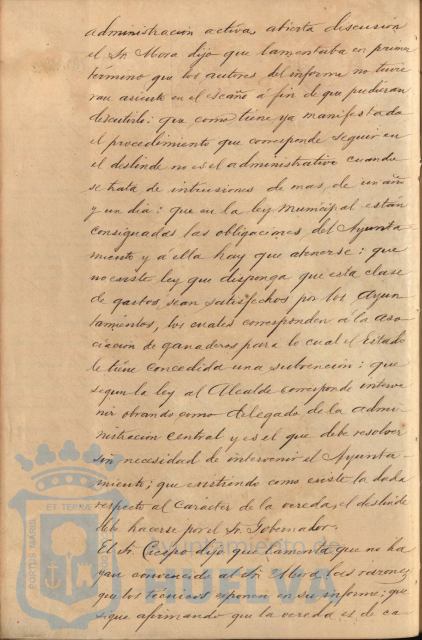 administración activa, abierta discusión
el Sr. Mora dijo que lamentaba en primer
término que los autores del informe no tuvie
ran asiento en el escaño á fin de que pudieran
discutirlo: que como tiene ya manifestado
el procedimiento que corresponde seguir en
el deslinde no es el administrativo cuando
se trata de intrusiones de mas, de un año
y un dia: que en la ley Municipal estan
consignadas las obligaciones del Ayunta-
miento y á ella hay que atenerse: que
no existe ley que disponga que esta clase
de gastos, sean satisfechos por los Ayun-
tamientos, los cuales corresponden á la aso
ciación de ganaderos para lo cual el Estado
le tiene concedida una subvención: que
segun la ley al Alcalde corresponde interve
nir obrando como delegado de la admi-
nistración central y es el que debe resolver
sin necesidad de intervenir el Ayunta-
miento; que existiendo como existe la duda
respecto al carácter de la vereda, el deslinde
debe hacerse por el Sr. Gobernador.
El Sr. Crespo dijo que lamenta que no ha
yan convencido al Sr. Mora las razones
que los técnicos exponen en su informe; que
sigue afirmando que la vereda es de ca
PORTUS MARIS
ET TERRAE
Ayuntamiento de
HUELVA